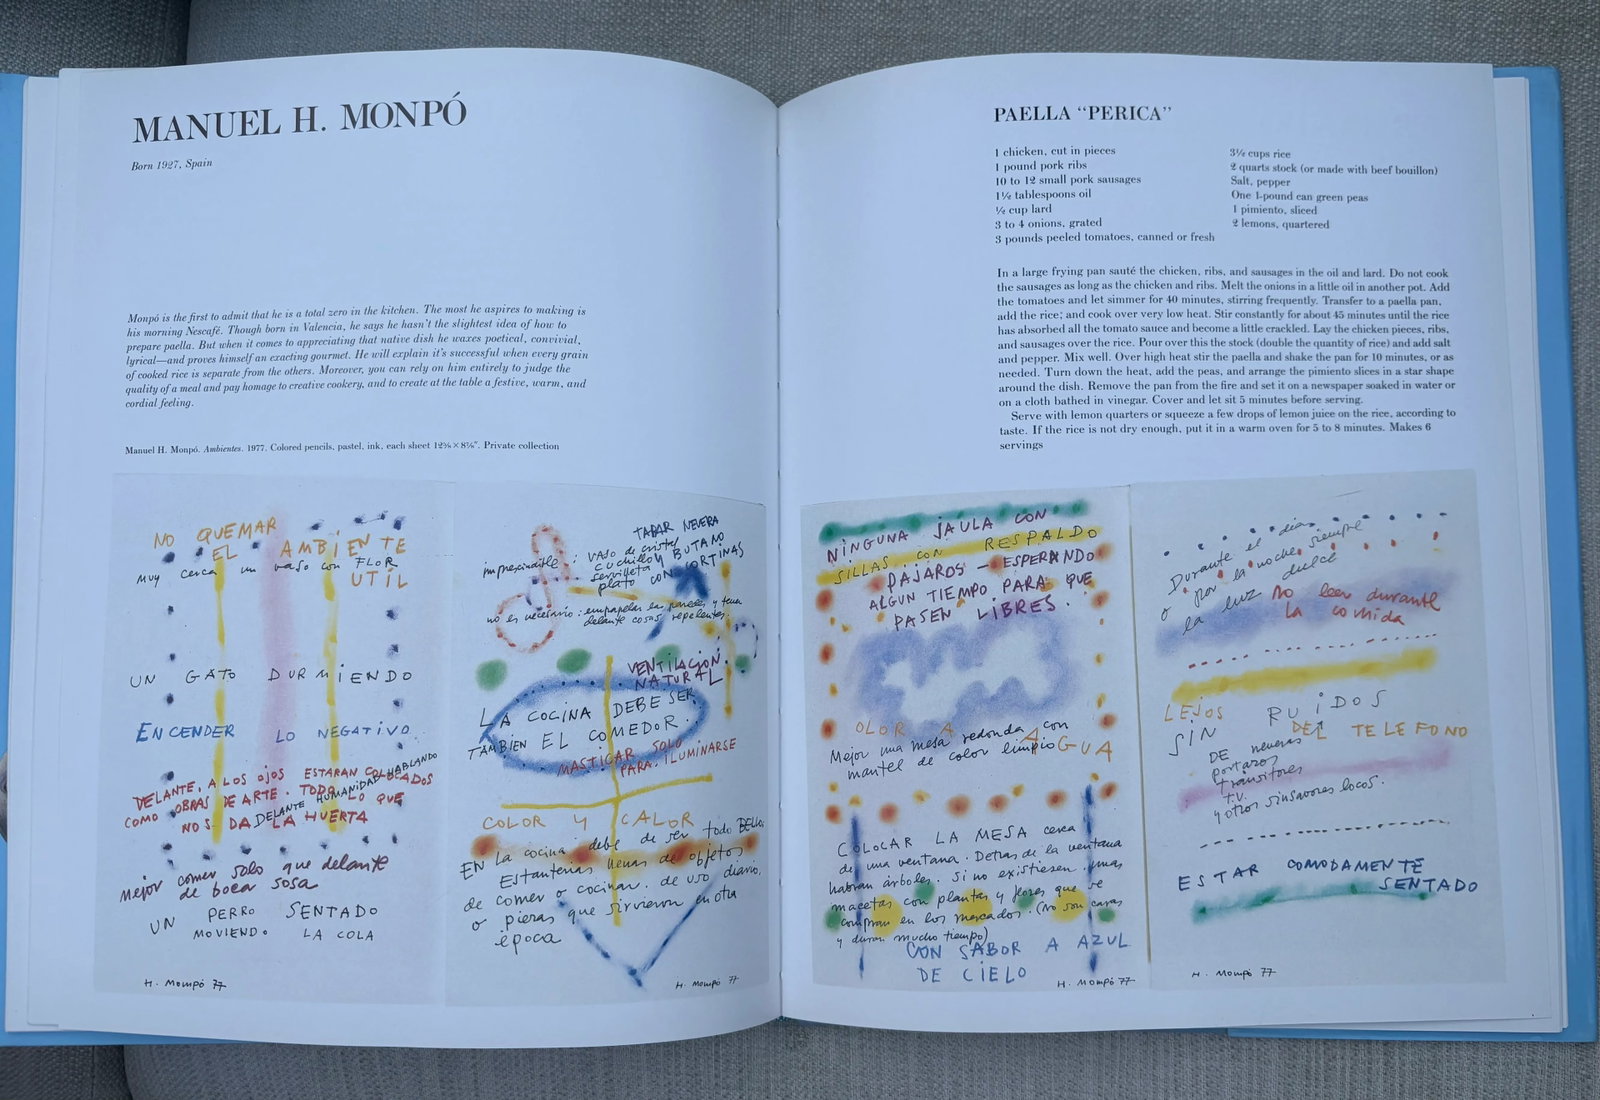 MANUEL H. MONPÓ
Born 1927, Spain
Monpó is the first to admit that he is a total zero in the kitchen. The most he aspires to making is
his morning Nescafé. Though born in Valencia, he says he hasn't the slightest idea of how to
prepare paella. But when it comes to appreciating that native dish he waxes poetical, convivial,
lyrical—and proves himself an exacting gourmet. He will explain it's successful when every grain
of cooked rice is separate from the others. Moreover, you can rely on him entirely to judge the
quality of a meal and pay homage to creative cookery, and to create at the table a festive, warm, and
cordial feeling.
Manuel H. Monpó. Ambientes. 1977. Colored pencils, pastel, ink, each sheet 12⅝ × 8⅝". Private collection
NO QUEMAR
EL AMBIENTE
muy cerca un vaso con FLOR
UTIL
UN GATO DURMIENDO
ENCENDER LO NEGATIVO
DELANTE, A LOS OJOS ESTARAN COLOCADOS
COMO OBRAS DE ARTE. TODO LO QUE
NOS DA LA HUERTA
DELANTE HUMANIDAD HABLANDO
mejor comer solo que delante
de boca sosa
UN PERRO SENTADO
MOVIENDO LA COLA
H. Mompó 77
TAPAR NEVERA
Y BUTANO
CON CORTINAS
imprescindible: vaso de cristal
cuchillo
servilleta
plato
no es necesario: empapelar las paredes y tener
delante cosas repelentes
VENTILACION
NATURAL
LA COCINA DEBE SER
TAMBIEN EL COMEDOR.
MASTICAR SOLO
PARA ILUMINARSE
COLOR Y CALOR
EN la cocina debe de ser todo BELLO.
Estanterias llenas de objetos
de comer o cocinar. de uso diario.
o piezas que sirvieron en otra
época
H. Mompó 77
PAELLA "PERICA"
1 chicken, cut in pieces
1 pound pork ribs
10 to 12 small pork sausages
1½ tablespoons oil
½ cup lard
3 to 4 onions, grated
3 pounds peeled tomatoes, canned or fresh
3½ cups rice
2 quarts stock (or made with beef bouillon)
Salt, pepper
One 1-pound can green peas
1 pimiento, sliced
2 lemons, quartered
In a large frying pan sauté the chicken, ribs, and sausages in the oil and lard. Do not cook
the sausages as long as the chicken and ribs. Melt the onions in a little oil in another pot. Add
the tomatoes and let simmer for 40 minutes, stirring frequently. Transfer to a paella pan,
add the rice; and cook over very low heat. Stir constantly for about 45 minutes until the rice
has absorbed all the tomato sauce and become a little crackled. Lay the chicken pieces, ribs,
and sausages over the rice. Pour over this the stock (double the quantity of rice) and add salt
and pepper. Mix well. Over high heat stir the paella and shake the pan for 10 minutes, or as
needed. Turn down the heat, add the peas, and arrange the pimiento slices in a star shape
around the dish. Remove the pan from the fire and set it on a newspaper soaked in water or
on a cloth bathed in vinegar. Cover and let sit 5 minutes before serving.
Serve with lemon quarters or squeeze a few drops of lemon juice on the rice, according to
taste. If the rice is not dry enough, put it in a warm oven for 5 to 8 minutes. Makes 6
servings
NINGUNA JAULA CON
SILLAS CON RESPALDO
PAJAROS - ESPERANDO
ALGUN TIEMPO PARA QUE
PASEN LIBRES.
OLOR A AGUA
Mejor una mesa redonda con
mantel de color limpio
COLOCAR LA MESA cerca
de una ventana. Detras de la ventana
habran árboles. Si no existiesen unas
macetas con plantas y flores que se
compran en los mercados. (No son caras
y duran mucho tiempo)
CON SABOR A AZUL
DE CIELO
H. Mompó 77
Durante el dia
o por la noche, siempre
la luz dulce
no leer durante
la comida
LEJOS DEL TELEFONO
SIN RUIDOS
DE neveras
portazos
transitores
T.V.
y otros sinsabores locos.
ESTAR COMODAMENTE
SENTADO
H. Mompó 77